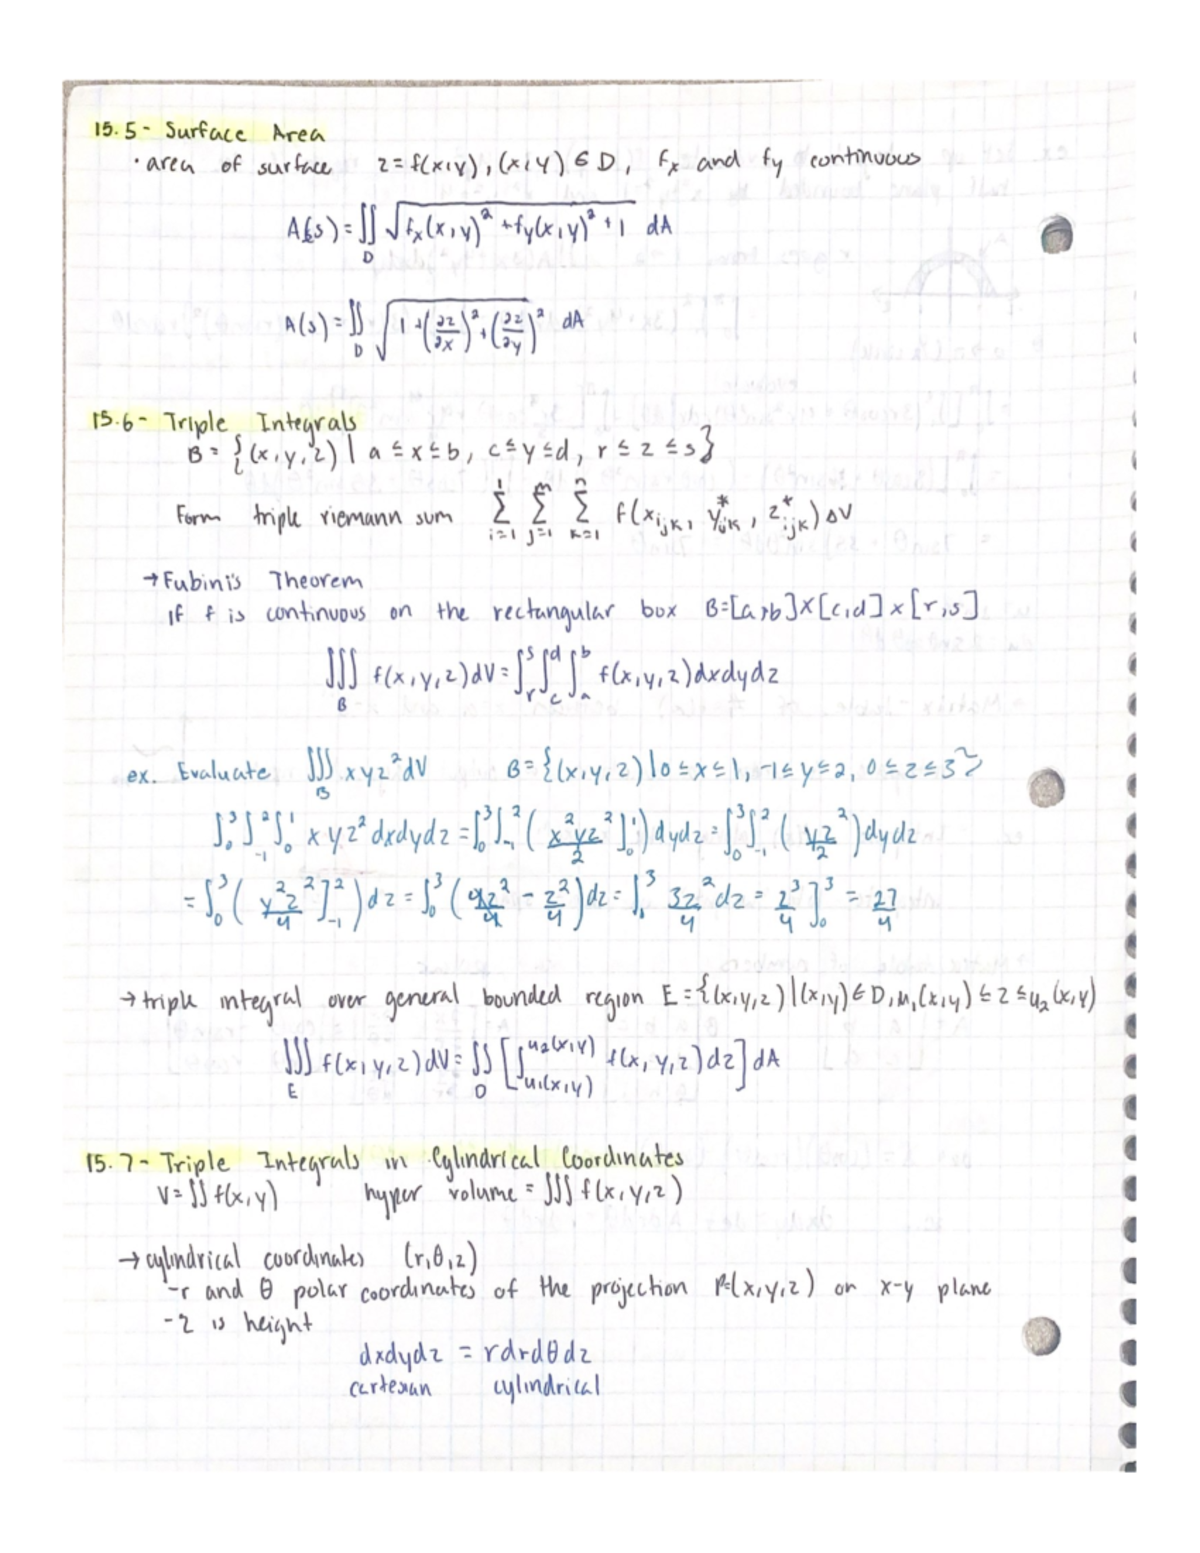 15.5 - Surface Area
· area of surface z = f(x,y), (x,y) ∈ D, fx and fy continuous
A(s) = ∬_D √(fx(x,y)² + fy(x,y)² + 1) dA
A(s) = ∬_D √(1 + (∂z/∂x)² + (∂z/∂y)²) dA
15.6 - Triple Integrals
B = {(x,y,z) | a ≤ x ≤ b, c ≤ y ≤ d, r ≤ z ≤ s}
Form triple riemann sum Σ_{i=1}^{l} Σ_{j=1}^{m} Σ_{k=1}^{n} f(x_ijk, y*_ijk, z*_ijk) ΔV
→ Fubini's Theorem
If f is continuous on the rectangular box B=[a,b]×[c,d]×[r,s]
∭_B f(x,y,z)dV = ∫_r^s ∫_c^d ∫_a^b f(x,y,z)dxdydz
ex. Evaluate ∭_B xyz² dV B = {(x,y,z) | 0 ≤ x ≤ 1, -1 ≤ y ≤ 2, 0 ≤ z ≤ 3}
∫_0^3 ∫_-1^2 ∫_0^1 xyz² dxdydz = ∫_0^3 ∫_-1^2 (x²yz²/2 ]_0^1) dydz = ∫_0^3 ∫_-1^2 (yz²/2) dydz
= ∫_0^3 (y²z²/4 ]_-1^2) dz = ∫_0^3 (4z²/4 - z²/4) dz = ∫_1^3 3z²/4 dz = z³/4 ]_0^3 = 27/4
→ triple integral over general bounded region E = {(x,y,z) | (x,y) ∈ D, u₁(x,y) ≤ z ≤ u₂(x,y)
∭_E f(x,y,z)dV = ∬_D [∫_{u1(x,y)}^{u2(x,y)} f(x,y,z)dz] dA
15.7 - Triple Integrals in Cylindrical Coordinates
V = ∬ f(x,y) hyper volume = ∭ f(x,y,z)
→ cylindrical coordinates (r,θ,z)
- r and θ polar coordinates of the projection P=(x,y,z) on x-y plane
- z is height
dxdydz = rdrdθdz
cartesian cylindrical